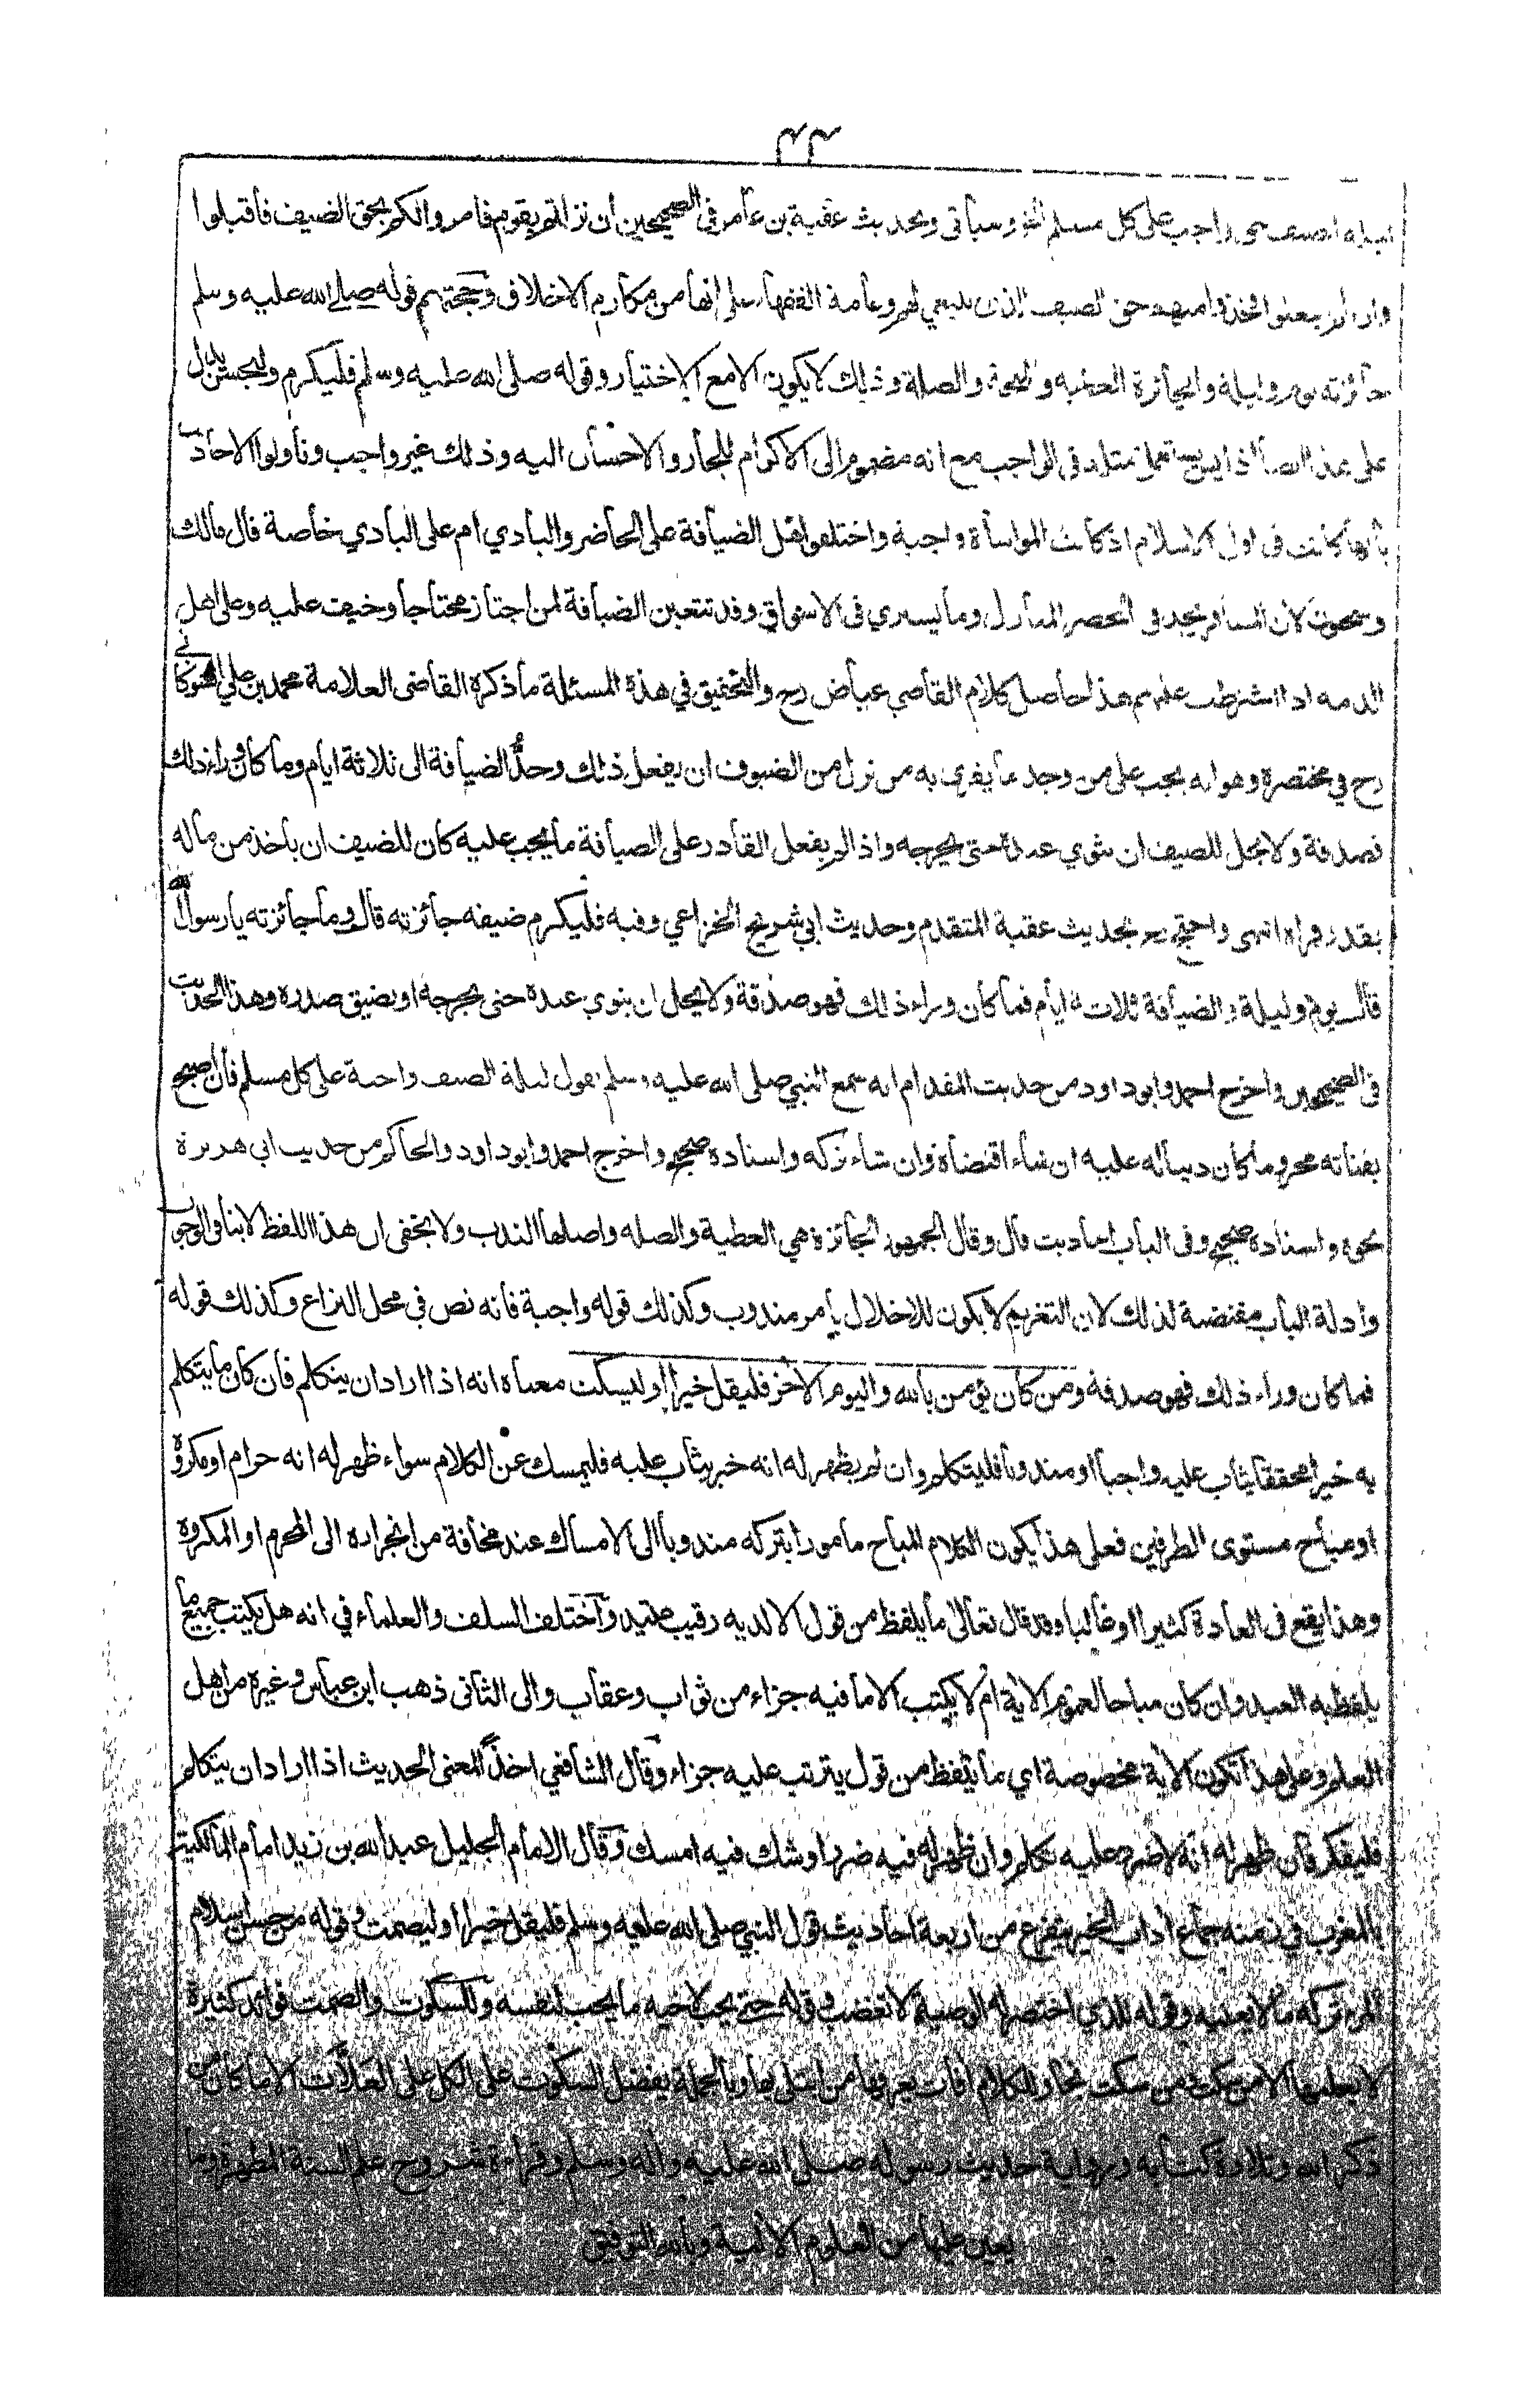 ٣٣
ليلة الضيف حق واجب على كل مسلم الخ وسيأتى وبحديث عقبة بن عامر فى الصحيحين ان نزلتم بقوم فامروا لكم بحق الضيف فاقبلوا
وان لم يفعلوا فخذوا منهم حق الضيف الذى ينبغي لهم وعامة الفقهاء على انها من مكارم الاخلاق وحجتهم قوله صلى الله عليه وسلم
جائزته يوم وليلة والجائزة العطية والمنحة والصلة وذلك لا يكون الا مع الاختيار وقوله صلى الله عليه وسلم فليكرم وليحسن يدل
على هذا ايضا اذ ليس يستعمل مثله فى الواجب مع انه مضموم الى الاكرام للجار والاحسان اليه وذلك غير واجب وتأولوا الاحاديث
بانها كانت فى اول الاسلام اذ كانت المواساة واجبة واختلفوا هل الضيافة على الحاضر والبادي ام على البادي خاصة قال مالك
وسحنون لان المسافر يجد فى الحضر المنازل وما يشترى فى الاسواق وقد تتعين الضيافة لمن اجتاز محتاجا وخيف عليه وعلى اهل
الذمه اذا اشترطت عليهم هذا حاصل كلام القاضي عياض رح والتحقيق في هذة المسئلة ما ذكرة القاضى العلامة محمد بن علي الشوكانى
رح في مختصرة وهو انه يجب على من وجد ما يقرى به من نزل من الضيوف ان يفعل ذلك وحدُّ الضيافة الى ثلاثة ايام وما كان وراء ذلك
فصدقة ولا يحل للضيف ان يثوي عنده حتى يحرجه واذا لم يفعل القادر على الضيافة ما يجب عليه كان للضيف ان ياخذ من ماله
بقدر قراه انتهى واحتج رح بحديث عقبة المتقدم وحديث ابي شريح الخزاعي وفيه فليكرم ضيفه جائزته قال وما جائزته يارسول الله
قال يوم وليلة والضيافة ثلاثة ايام فما كان وراء ذلك فهو صدقة ولا يحل ان يثوي عنده حتى يحرجه او يضيق صدره وهذا الحديث
فى الصحيحين واخرج احمد وابو داود من حديث المقدام انه سمع النبي صلى الله عليه وسلم يقول ليلة الضيف واجبة على كل مسلم فان اصبح
بفنائه محروما كان دينا له عليه ان شاء اقتضاه وان شاء تركه واسناده صحيح واخرج احمد وابو داود والحاكم من حديث ابى هريرة
نحوه واسناده صحيح وفى الباب احاديث قال وقال الجمهور الجائزة هي العطية والصله واصلها الندب ولا يخفى ان هذا اللفظ لا ينافى الوجوب
وادلة الباب مقتضية لذلك لان التغريم لا يكون للاخلال بامر مندوب وكذلك قوله واجبة فانه نص في محل النزاع وكذلك قوله
فما كان وراء ذلك فهو صدقة ومن كان يؤمن بالله واليوم الاخر فليقل خيرا او ليسكت معناه انه اذا اراد ان يتكلم فان كان ما يتكلم
به خيرا محققا يثاب عليه واجبا او مندوبا فليتكلم وان لم يظهر له انه خير يثاب عليه فليمسك عن الكلام سواء ظهر له انه حرام او مكروه
او مباح مستوى الطرفين فعلى هذا يكون الكلام المباح مامورا بتركه مندوبا الى الامساك عند مخافة من انجراره الى المحرم او المكروه
وهذا يقع فى العادة كثيرا او غالبا وقد قال تعالى ما يلفظ من قول الا لديه رقيب عتيد واختلف السلف والعلماء في انه هل يكتب جميع ما
يلفظ به العبد وان كان مباحا لعموم الاية ام لا يكتب الا ما فيه جزاء من ثواب وعقاب والى الثانى ذهب ابن عباس وغيره من اهل
العلم وعلى هذا تكون الاية مخصوصة اي ما يلفظ من قول يترتب عليه جزاء وقال الشافعي اخذًا لمعنى الحديث اذا اراد ان يتكلم
فليفكر فان ظهر له انه لا ضرر عليه تكلم وان ظهر له فيه ضرر او شك فيه امسك وقال الامام الجليل عبد الله بن زيد امام المالكية
بالمغرب في زمنه جماع اداب الخير يتفرع من اربعة احاديث قول النبي صلى الله عليه وسلم فليقل خيرا او ليصمت وقوله من حسن اسلام
المرء تركه ما لا يعنيه وقوله للذي اختصر له الوصية لا تغضب وقوله حتى يحب لاخيه ما يحب لنفسه وللسكوت والصمت فوائد كثيرة
لا يعلمها الا من سكت فمن سكت نجا وللكلام افات يعرفها من ابتلى بها وبالجملة يفضل السكوت على الكل على العلات الا ما كان من
ذكر الله وتلاوة كتابه ورواية حديث رسوله صلى الله عليه واله وسلم وقراءة شروح علم السنة المطهرة وما
يعين عليها من العلوم الالية وبالله التوفيق